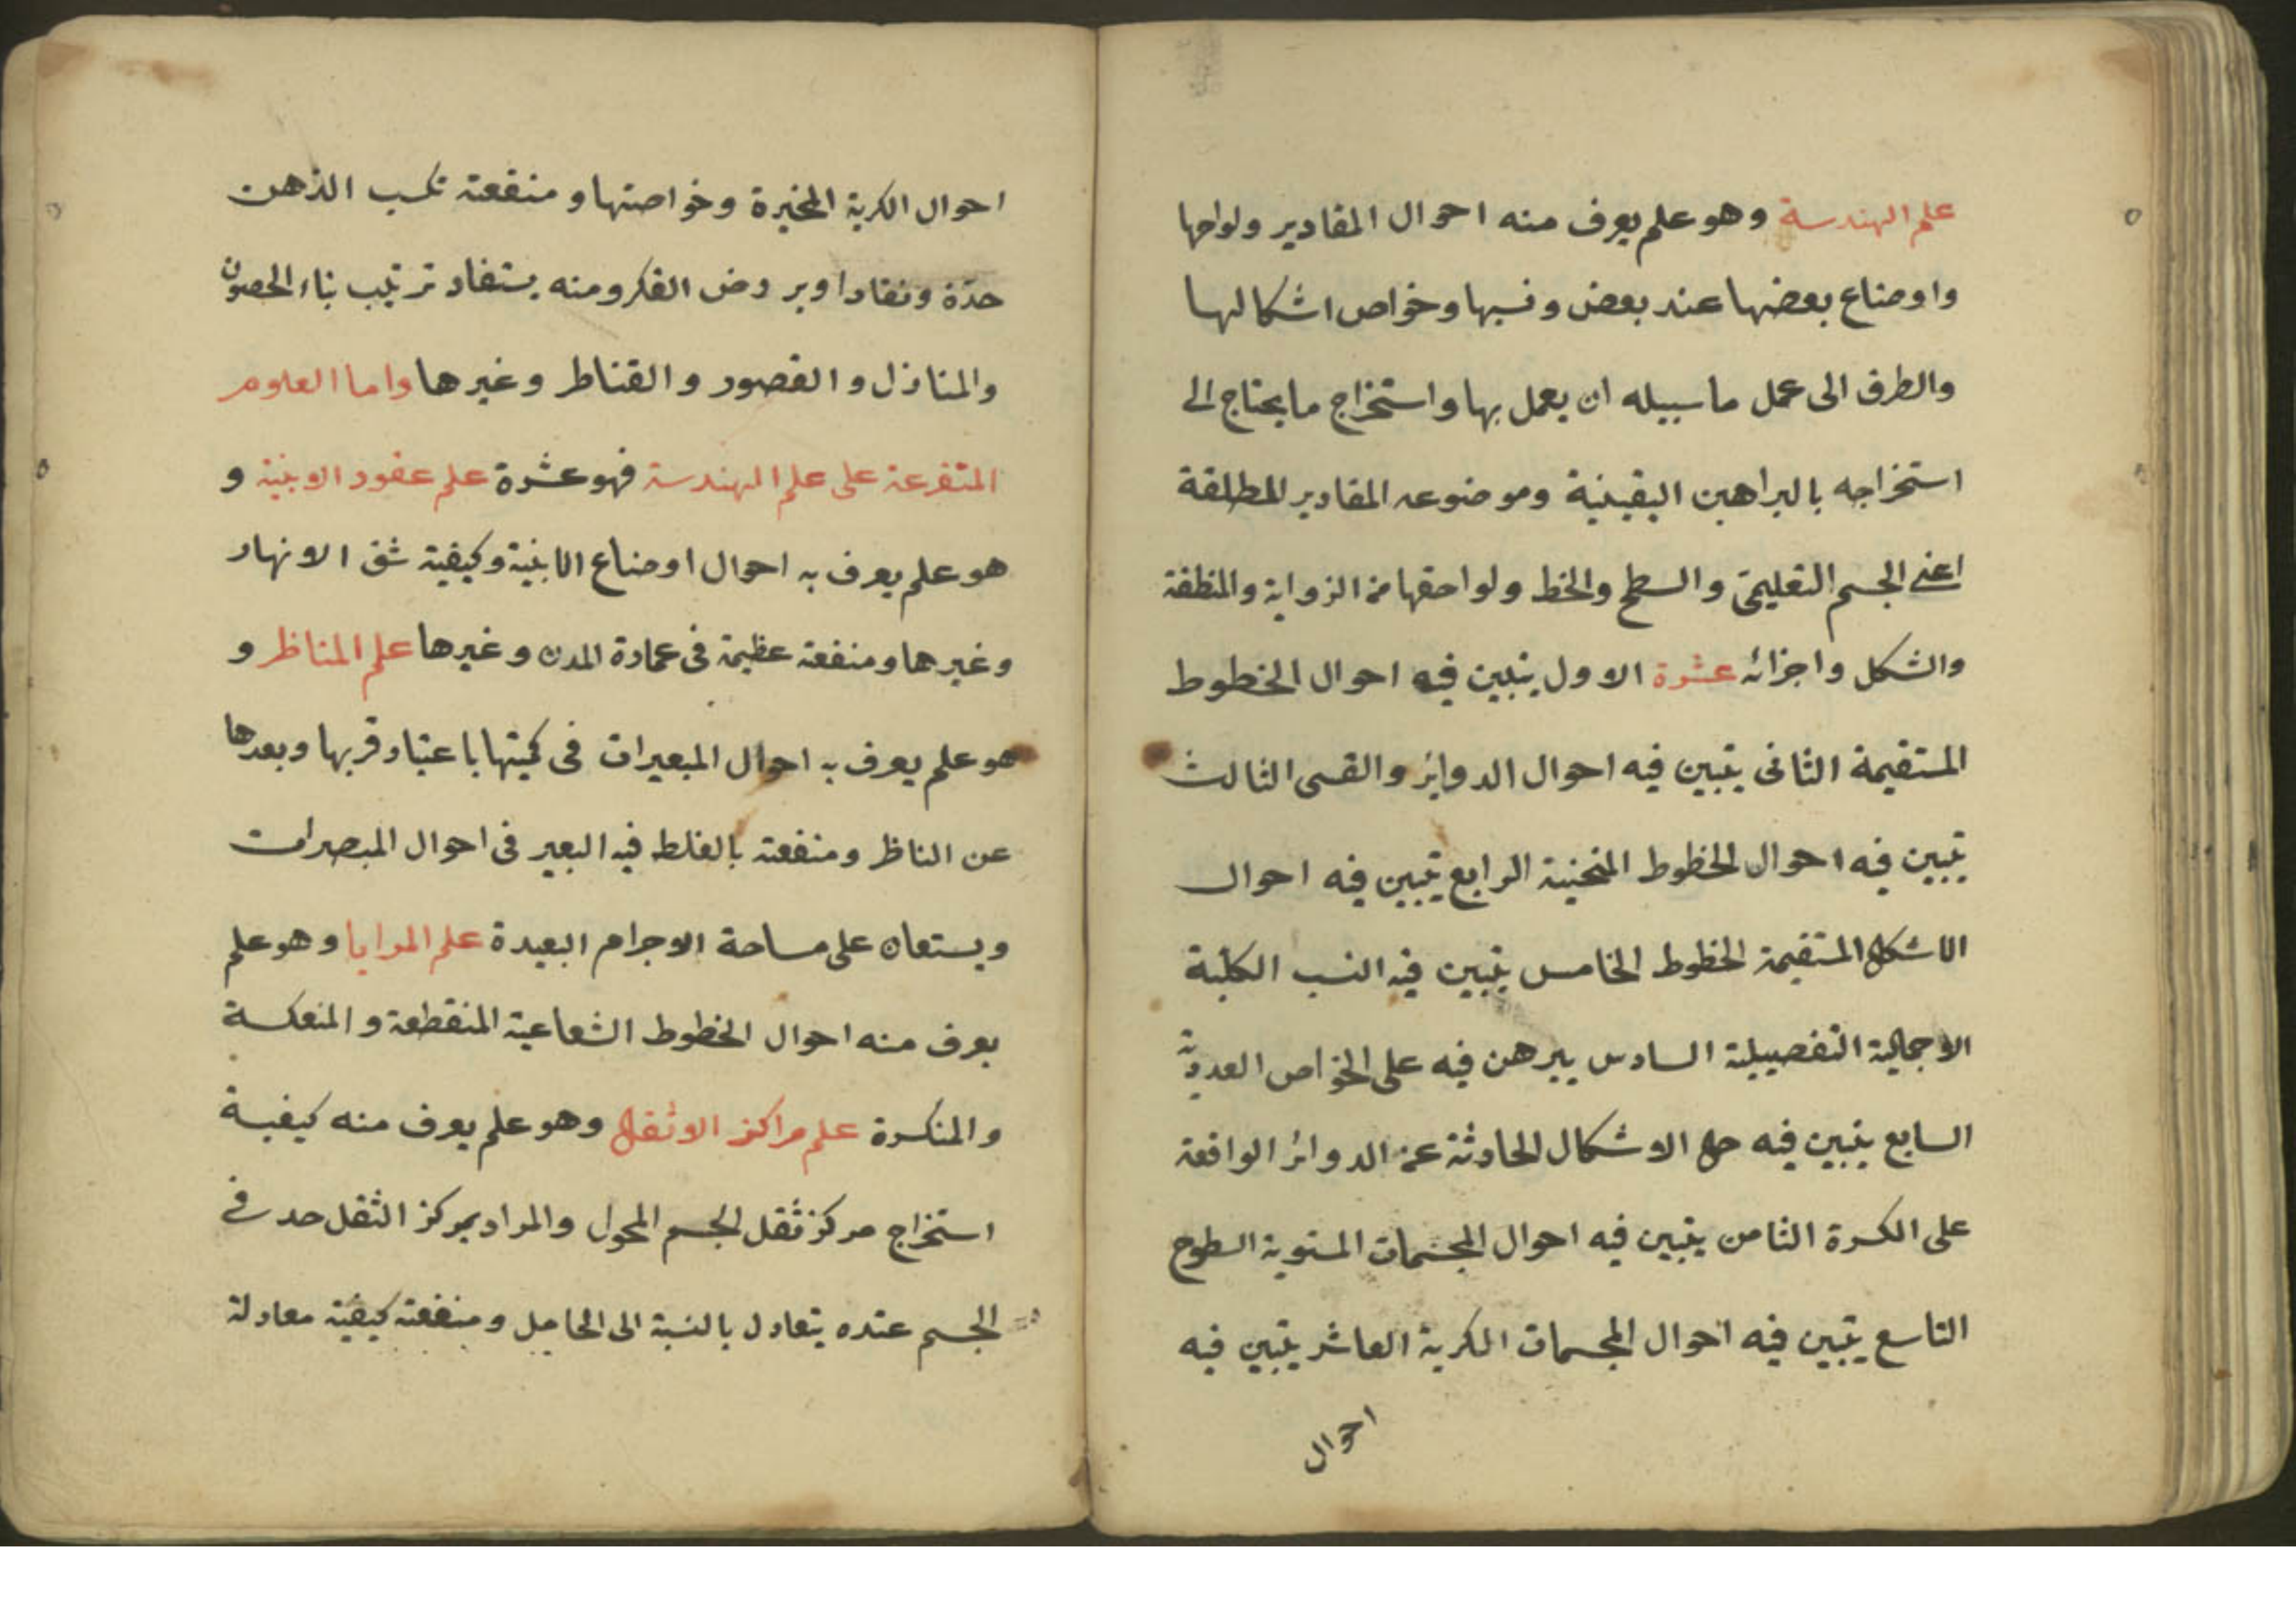 علم الهندسة وهو علم يعرف منه احوال المقادير ولواحها
واوضاع بعضها عند بعض ونسبها وخواص اشكالها
والطرق الى عمل ما سبيله ان يعمل بها واستخراج ما يحتاج الى
استخراجه بالبراهين اليقينية وموضوعه المقادير المطلقة
اعنى الجسم التعليمى والسطح والخط ولواحقها من الزواية والمنطقة
والشكل واجزائه عشرة الاول يتبين فيه احوال الخطوط
المستقيمة الثانى يتبين فيه احوال الدواير والقسى الثالث
يتبين فيه احوال الخطوط المنحنية الرابع يتبين فيه احوال
الاشكال المستقيمة الخطوط الخامس يتبين فيه النسب الكلية
الاجمالية التفصيلية السادس يبرهن فيه على الخواص العددية
السابع يتبين فيه حال الاشكال الحادثة عن الدوائر الواقعة
على الكرة الثامن يتبين فيه احوال المجسمات المستوية السطوح
التاسع يتبين فيه احوال المجسمات الكرية العاشر يتبين فيه
احوال
احوال الكرية المخيرة وخواصتها ومنفعته تكسب الذهن
حدّة ونفادا ويروض الفكر ومنه يستفاد ترتيب بناء الحصون
والمنازل والقصور والقناطر وغيرها واما العلوم
المتفرعة على علم الهندسة فهو عشرة علم عقود الابنية و
هو علم يعرف به احوال اوضاع الابنية وكيفية شق الانهار
وغيرها ومنفعته عظيمة فى عمارة المدن وغيرها علم المناظر و
هو علم يعرف به احوال المبعيرات فى كميتها باعتبار قربها وبعدها
عن الناظر ومنفعته بالغلط فيه البعير فى احوال المبصرات
ويستعان على مساحة الاجرام البعيدة علم المرايا وهو علم
يعرف منه احوال الخطوط الشعاعية المنقطعة والمنعكسة
والمنكسرة علم مراكز الاثقال وهو علم يعرف منه كيفية
استخراج مركز ثقل الجسم المحول والمراد بمركز الثقل حد فى
الجسم عنده يتعادل بالنسبة الى الحامل ومنفعته كيفية معادلة